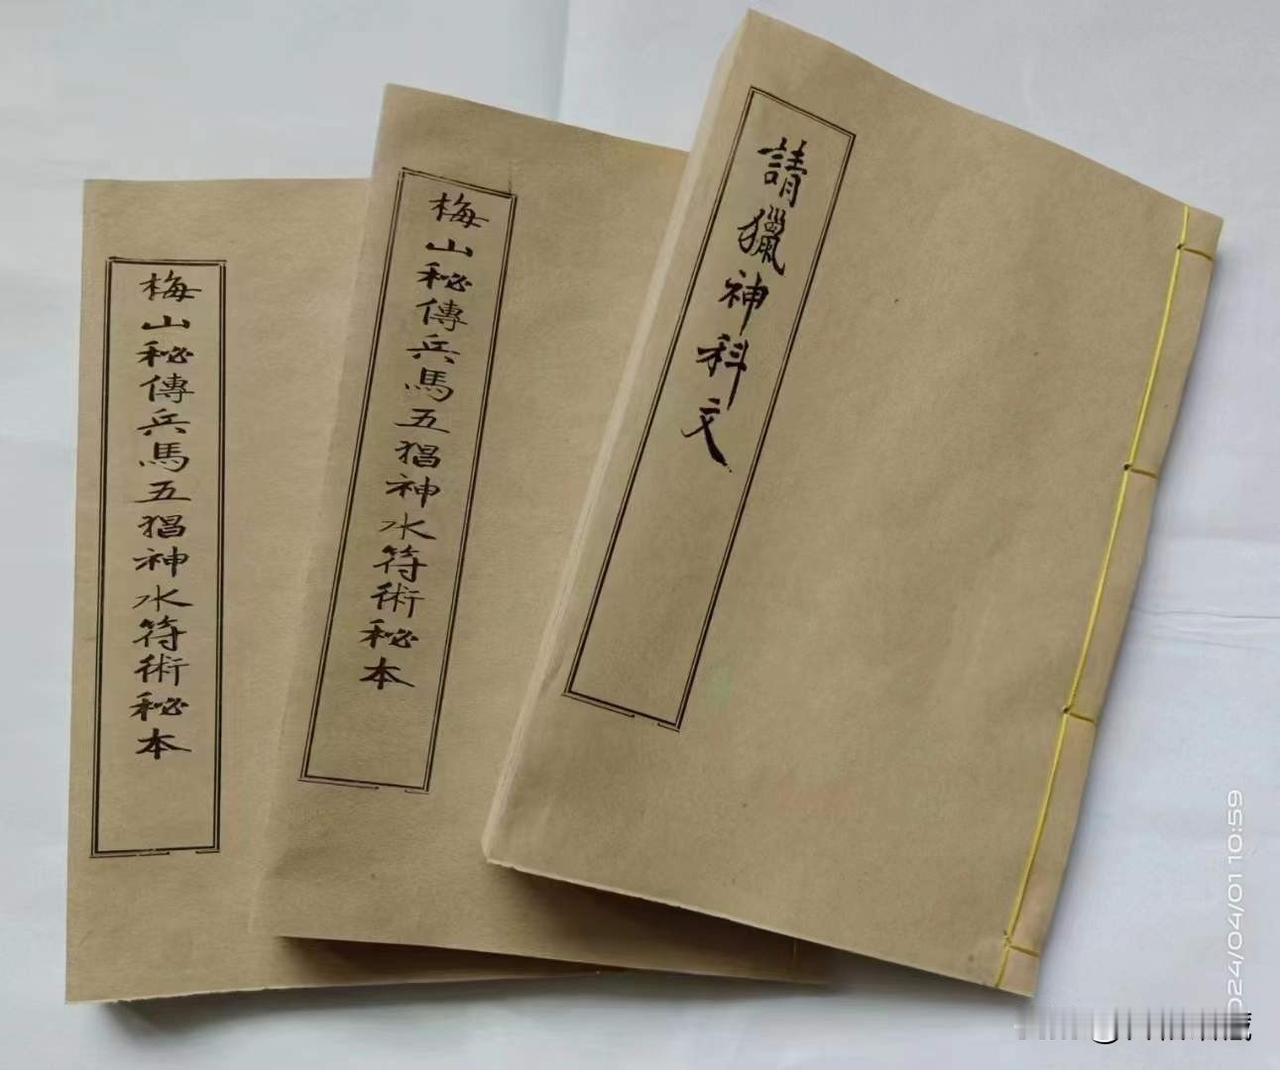 梅山秘傳兵馬五猖神水符術秘本
梅山秘傳兵馬五猖神水符術秘本
請獵神科文
024/04/01 10:59